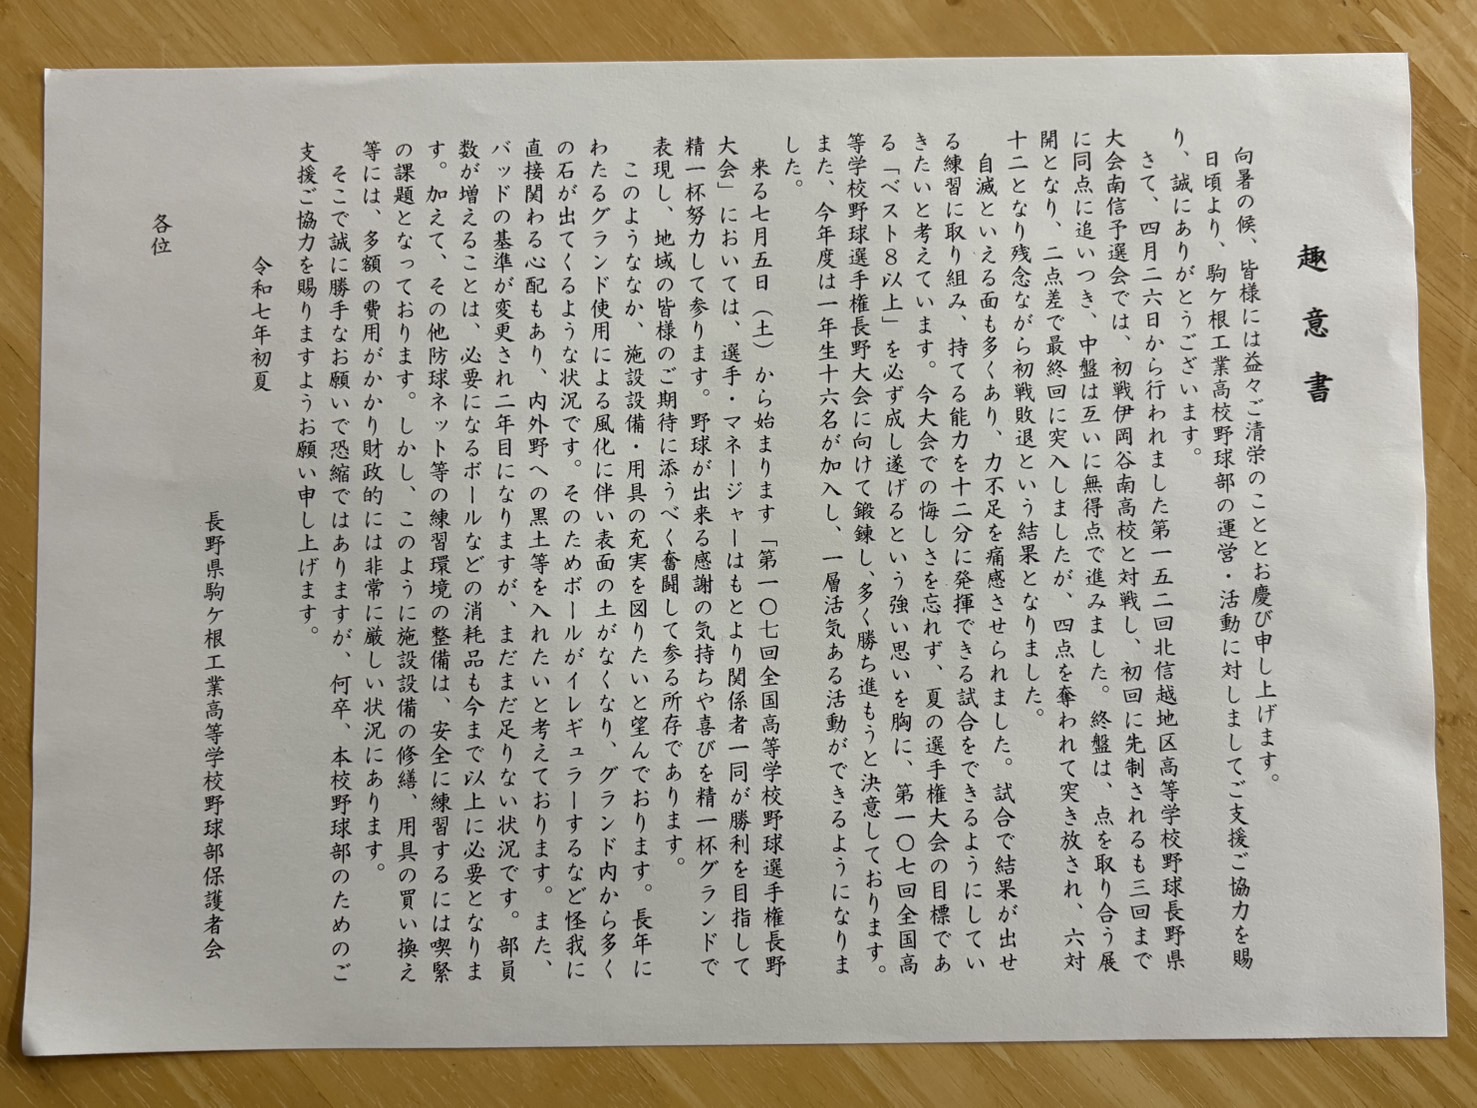 趣意書
向暑の候、皆様には益々ご清栄のこととお慶び申し上げます。
日頃より、駒ケ根工業高校野球部の運営・活動に対しましてご支援ご協力を賜
り、誠にありがとうございます。
さて、四月二六日から行われました第一五二回北信越地区高等学校野球長野県
大会南信予選会では、初戦伊岡谷南高校と対戦し、初回に先制されるも三回まで
に同点に追いつき、中盤は互いに無得点で進みました。終盤は、点を取り合う展
開となり、二点差で最終回に突入しましたが、四点を奪われて突き放され、六対
十二となり残念ながら初戦敗退という結果となりました。
自滅といえる面も多くあり、力不足を痛感させられました。試合で結果が出せ
る練習に取り組み、持てる能力を十二分に発揮できる試合をできるようにしてい
きたいと考えています。今大会での悔しさを忘れず、夏の選手権大会の目標であ
る「ベスト８以上」を必ず成し遂げるという強い思いを胸に、第一〇七回全国高
等学校野球選手権長野大会に向けて鍛錬し、多く勝ち進もうと決意しております。
また、今年度は一年生十六名が加入し、一層活気ある活動ができるようになりま
した。
来る七月五日（土）から始まります「第一〇七回全国高等学校野球選手権長野
大会」においては、選手・マネージャーはもとより関係者一同が勝利を目指して
精一杯努力して参ります。野球が出来る感謝の気持ちや喜びを精一杯グランドで
表現し、地域の皆様のご期待に添うべく奮闘して参る所存であります。
このようななか、施設設備・用具の充実を図りたいと望んでおります。長年に
わたるグランド使用による風化に伴い表面の土がなくなり、グランド内から多く
の石が出てくるような状況です。そのためボールがイレギュラーするなど怪我に
直接関わる心配もあり、内外野への黒土等を入れたいと考えております。また、
バッドの基準が変更され二年目になりますが、まだまだ足りない状況です。部員
数が増えることは、必要になるボールなどの消耗品も今まで以上に必要となりま
す。加えて、その他防球ネット等の練習環境の整備は、安全に練習するには喫緊
の課題となっております。しかし、このように施設設備の修繕、用具の買い換え
等には、多額の費用がかかり財政的には非常に厳しい状況にあります。
そこで誠に勝手なお願いで恐縮ではありますが、何卒、本校野球部のためのご
支援ご協力を賜りますようお願い申し上げます。
令和七年初夏
長野県駒ケ根工業高等学校野球部保護者会
各位